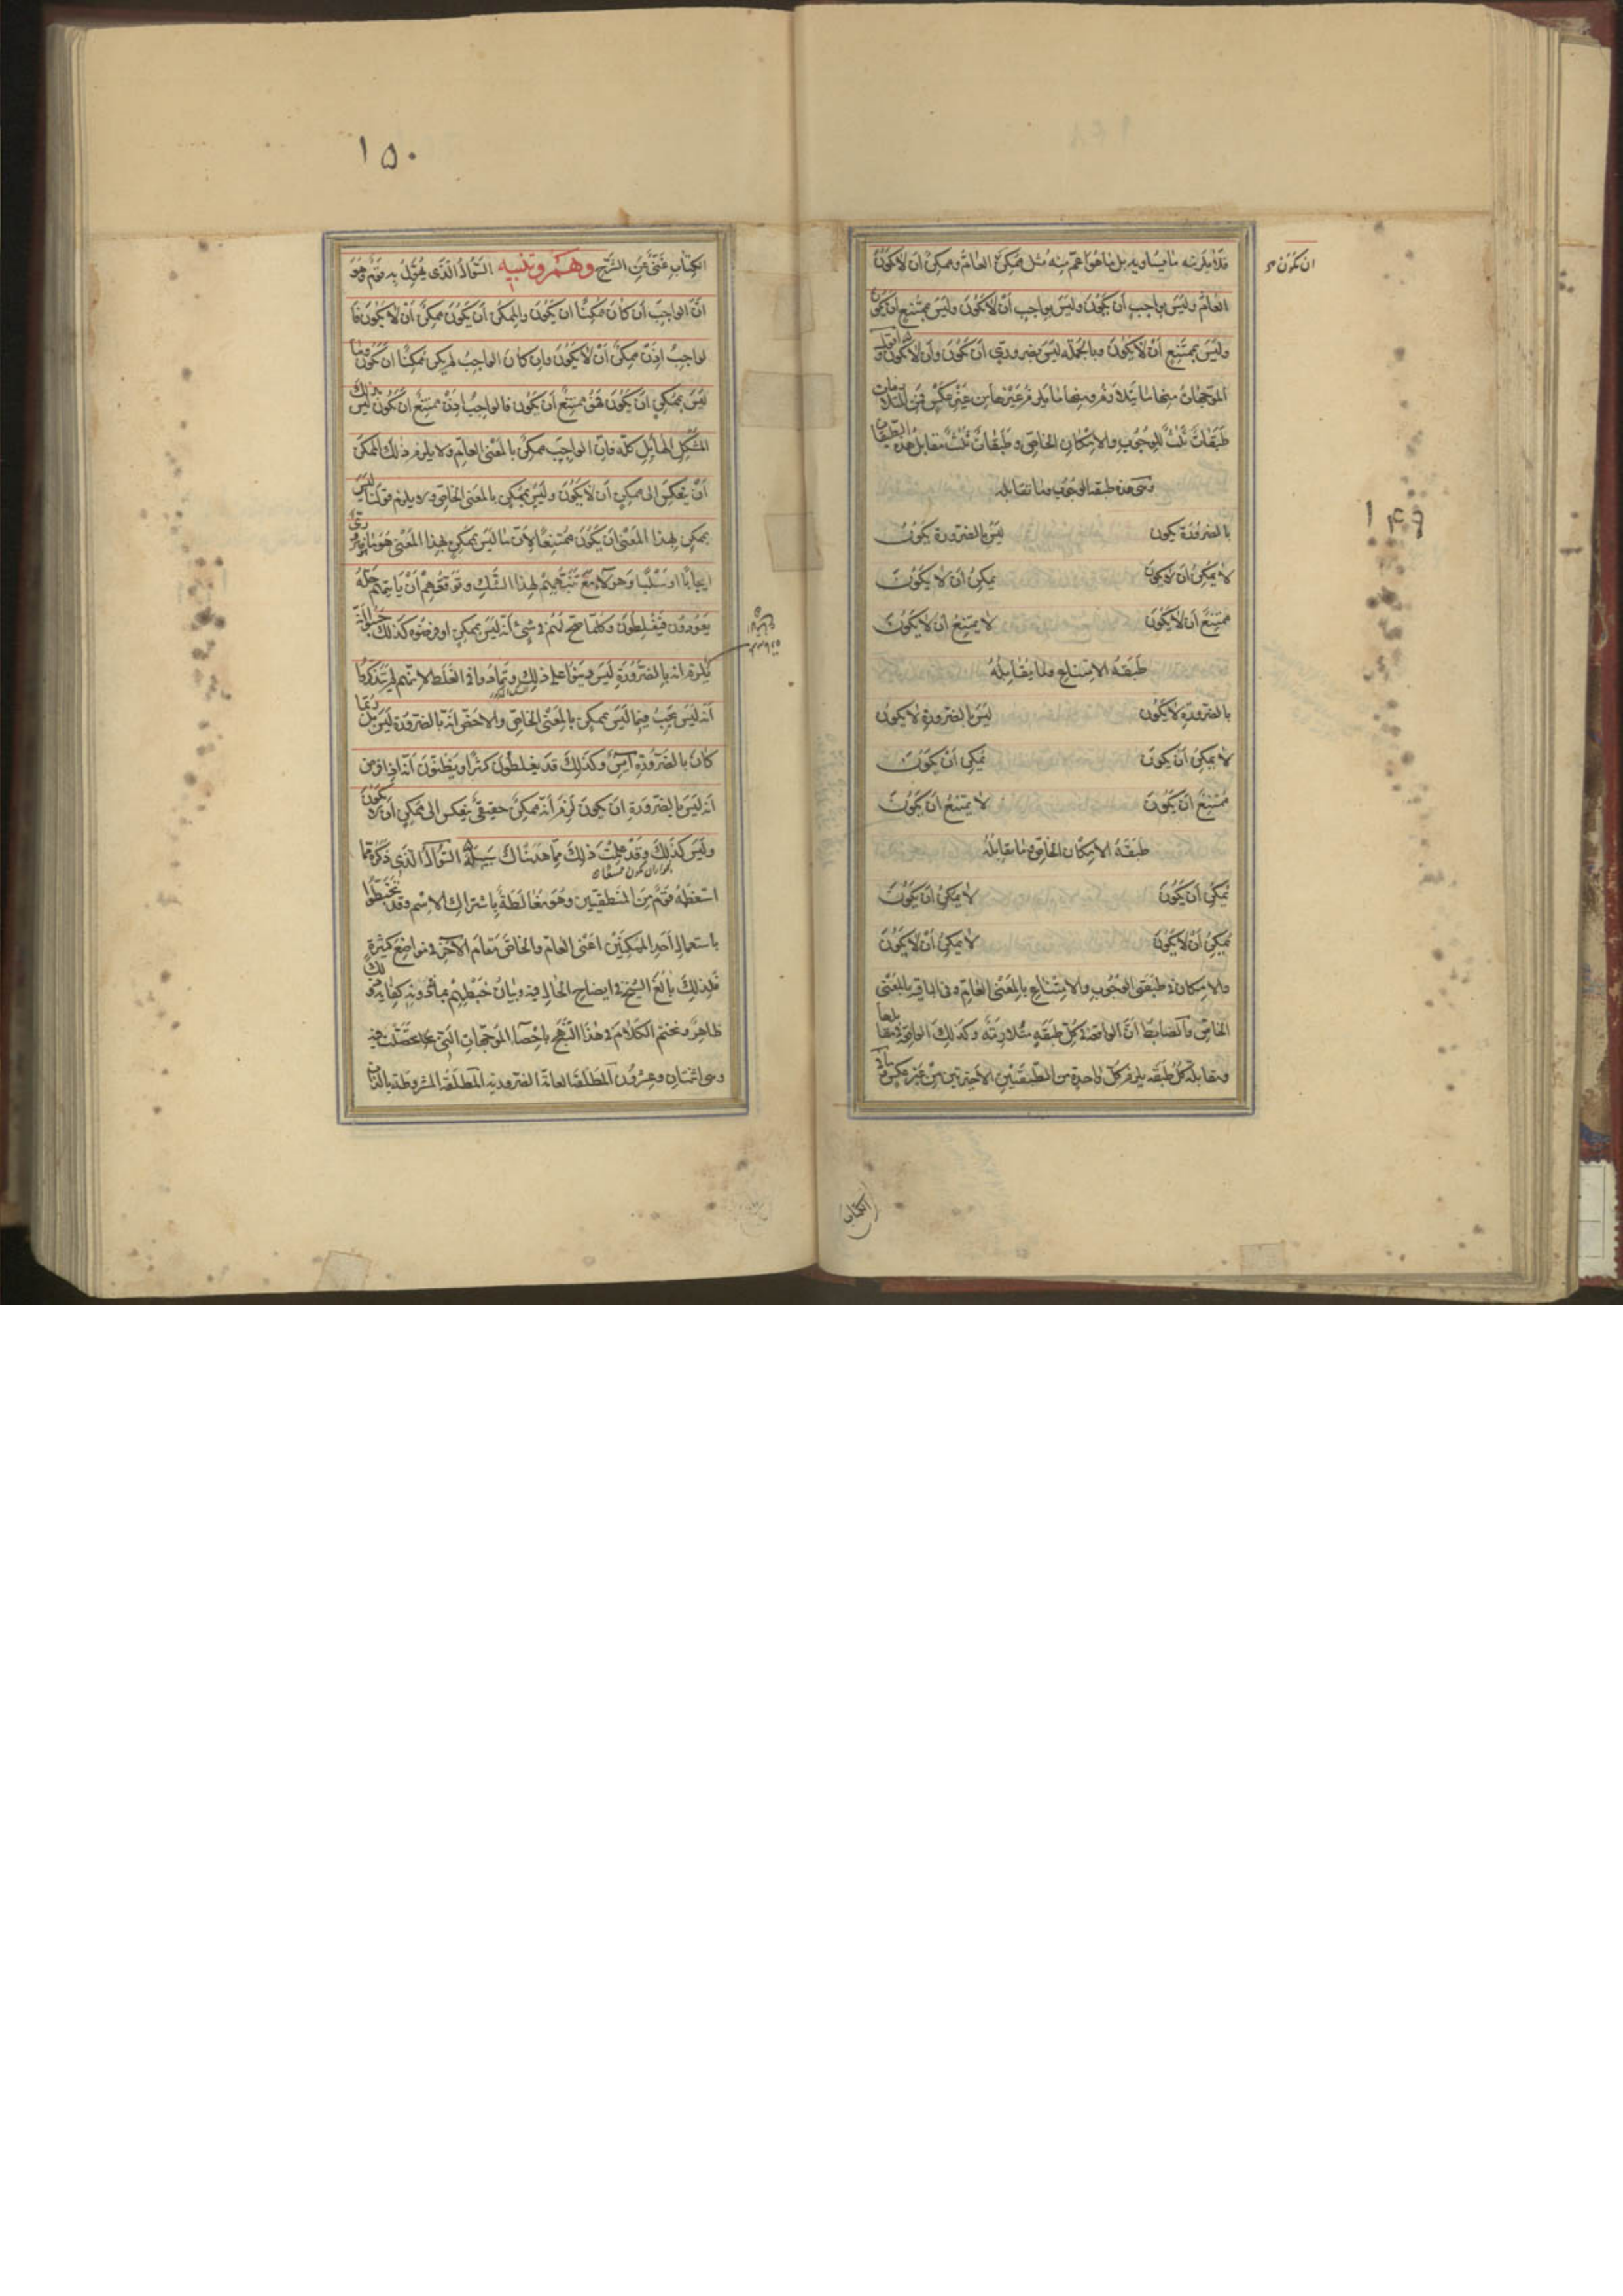 ١٤٩
ان يكون
فلا يلزمه ما يساويه بل ما هو اعم منه مثل ممكن العام وممكن ان لا يكون
العام وليس بواجب ان يكون وليس بواجب ان لا يكون وليس بممتنع ان يكون
وليس بممتنع ان لا يكون وبالجملة ليس بضروري ان يكون وان لا يكون اقول
الموجهات منها ما يتلازم ومنها ما يلزم غيرها من غير عكس فمن المتلازمات
طبقات ثلث للوجوب والامكان الخاص وطبقات ثلث مقابل هذه الطبقات
وهى هذه طبقة الوجوب وما تقابله
بالضرورة يكون ليس بالضرورة يكون
لا يمكن ان لا يكون يمكن ان لا يكون
ممتنع ان لا يكون لا يمتنع ان لا يكون
طبقة الامتناع وما يقابله
بالضرورة لا يكون ليس بالضرورة لا يكون
لا يمكن ان يكون يمكن ان يكون
ممتنع ان يكون لا يمتنع ان يكون
طبقة الامكان الخاص وما يقابله
يمكن ان يكون لا يمكن ان يكون
يمكن ان لا يكون لا يمكن ان لا يكون
والامكان فى طبقتى الوجوب والامتناع بالمعنى العام وفى الباقية بالمعنى
الخاص والضابط ان الواقعة فى كل طبقة متلازمة وكذلك الواقعة فى مقابلها
ومقابلة كل طبقة يلزم كل واحدة من الطبقتين الاخيرتين من غير عكس
الكتاب
١٥٠
الكتاب غنى عن الشرح وهم وتنبيه السؤال الذى يهول به قوم وهو
ان الواجب ان كان ممكنا ان يكون والممكن ان يكون ممكن ان لا يكون فا
لواجب اذن ممكن ان لا يكون وان كان الواجب لم يكن ممكنا ان يكون وما
ليس بممكن ان يكون فهو ممتنع ان يكون فالواجب اذن ممتنع ان يكون ليس ذلك
المشكل الهايل كله فان الواجب ممكن بالمعنى العام ولا يلزم ذلك الممكن
ان ينعكس الى ممكن ان لا يكون وليس بممكن بالمعنى الخاص ولا يلزم قولنا ليس
بممكن بهذا المعنى ان يكون ممتنعا لان ما ليس بممكن بهذا المعنى هو ما ضرورى
ايجابا او سلبا وهولاء مع تنبههم لهذا الشك وتوقعهم ان ياتيهم حله
يعودون فيغلطون وكلما صح لهم فى شئ انه ليس بممكن او فرضوه كذلك حسبوا انه
يلزم انه بالضرورة ليس وبنوا على ذلك وتمادوا فى الغلط لانهم لم يتذكروا
انه ليس يجب فيما ليس بممكن بالمعنى الخاص والاخص انه بالضرورة ليس بل ربما
كان بالضرورة ايس وكذلك قد يغلطون كثيرا ويظنون انه اذا فرض
انه ليس بالضرورة ان يكون لزم انه ممكن حقيقى ينعكس الى ممكن ان لا يكون
وليس كذلك وقد علمت ذلك مما هديناك سبيله السؤال الذى ذكره مما
استعظمه قوم من المنطقيين وهو مغالطة باشتراك الاسم وقد تخبطوا
باستعمال احد الممكنين اعنى العام والخاص مقام الآخر فى مواضع كثيرة
فلذلك بالغ الشيخ فى ايضاح الحال فيه وبيان خبطهم بما فى دونه كفاية وذلك
ظاهر ونختم الكلام فى هذا النهج باحصاء الموجهات التى تحصلت فيه
وهى اثنتان وعشرون المطلقة العامة الضرورية المطلقة المشروطة بالذات